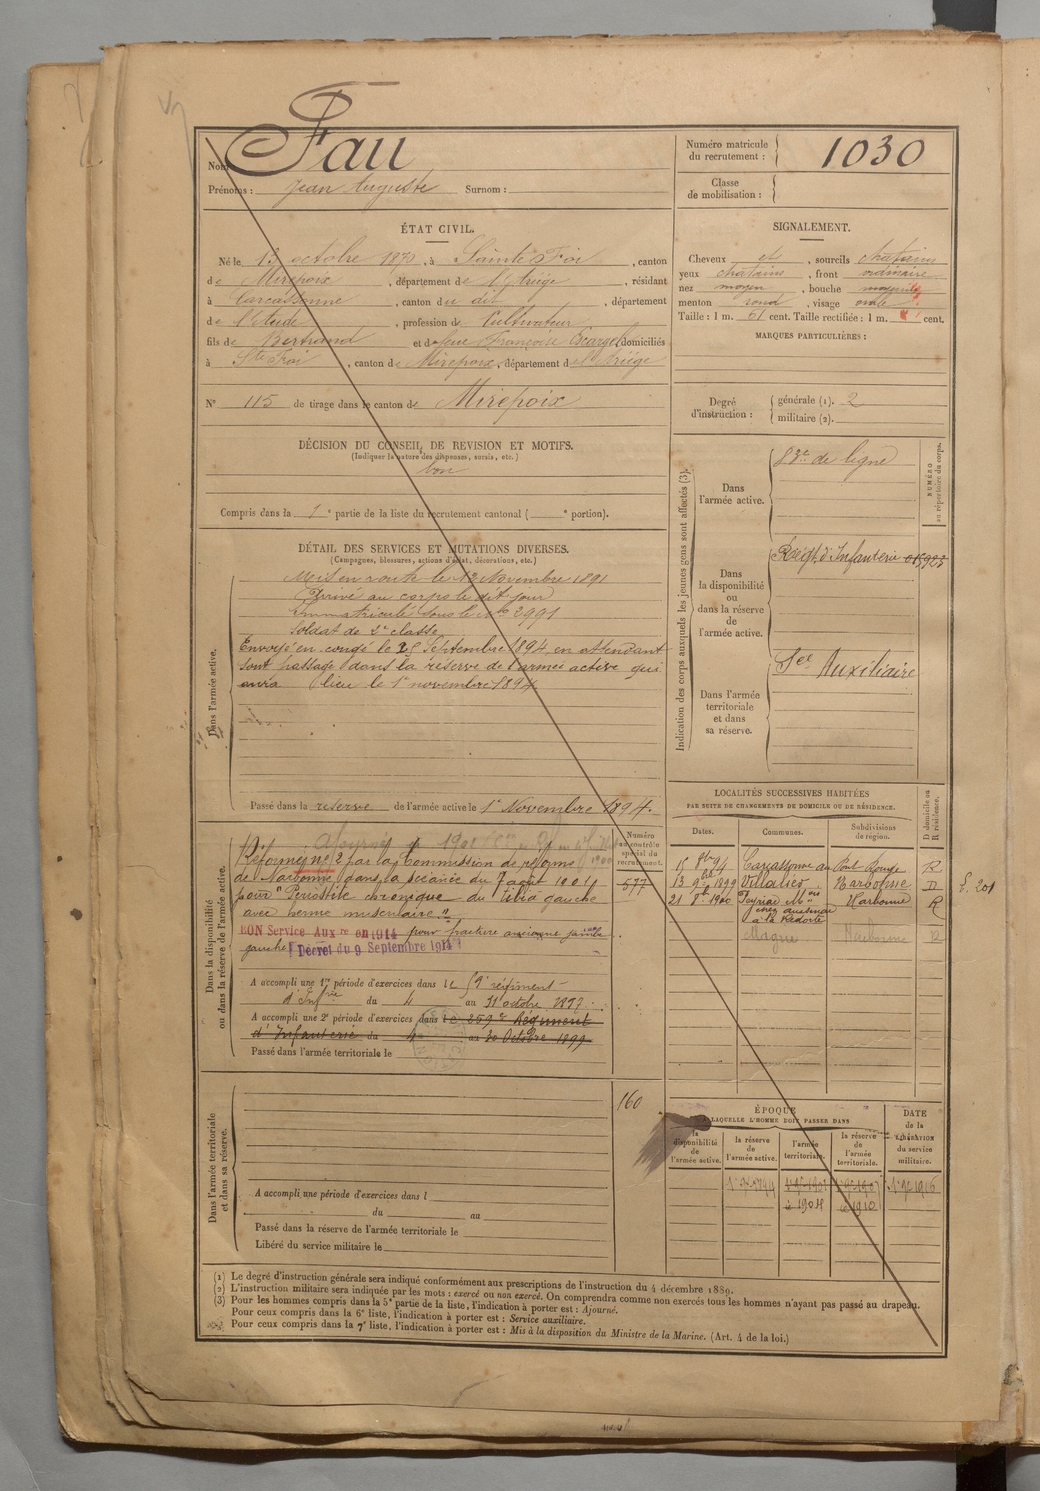 Nom Fau
Prénoms : Jean Auguste Surnom :
Numéro matricule du recrutement : 1030
Classe de mobilisation :
ÉTAT CIVIL.
Né le 13 octobre 1870, à Sainte Foi, canton
de Mirepoix, département de l'Ariège, résidant
à Carcassonne, canton du dit, département
de l'Aude, profession de Cultivateur
fils de Bertrand et de feue Françoise Escargel domiciliés
à Ste Foi, canton de Mirepoix, département de l'Ariège
N° 115 de tirage dans le canton de Mirepoix
SIGNALEMENT.
Cheveux et, sourcils chatains
yeux chatains, front ordinaire
nez moyen, bouche moyenne
menton rond, visage ovale
Taille : 1 m. 61 cent. Taille rectifiée : 1 m. cent.
MARQUES PARTICULIÈRES :
Degré d'instruction : générale (1). 2
militaire (2).
DÉCISION DU CONSEIL DE REVISION ET MOTIFS.
(Indiquer la nature des dispenses, sursis, etc.)
bon
Compris dans la 1e partie de la liste du recrutement cantonal ( e portion).
DÉTAIL DES SERVICES ET MUTATIONS DIVERSES.
(Campagnes, blessures, actions d'éclat, décorations, etc.)
Dans l'armée active.
Mis en route le 12 Novembre 1891
Arrivé au corps le dit jour
Immatriculé sous le no 2991
Soldat de 2e classe
Envoyé en congé le 25 Septembre 1894, en attendant
son passage dans la réserve de l'armée active qui
aura lieu le 1er novembre 1894
Passé dans la réserve de l'armée active le 1er Novembre 1894.
Indication des corps auxquels les jeunes gens sont affectés (3).
NUMÉRO au répertoire du corps.
Dans l'armée active.
de ligne
Dans la disponibilité ou dans la réserve de l'armée active.
Régt d'Infanterie
Dans l'armée territoriale et dans sa réserve.
Sce Auxiliaire
LOCALITÉS SUCCESSIVES HABITÉES
PAR SUITE DE CHANGEMENTS DE DOMICILE OU DE RÉSIDENCE.
Dates. Communes. Subdivisions de région. D domicile ou R résidence.
15 8bre 94 Carcassonne au Pont Rouge R
13 9bre 1899 Villalier Narbonne D
21 8bre 1900 Peyriac Mois Narbonne R
à la Redorte
Narbonne R
f. 201
Dans la disponibilité ou dans la réserve de l'armée active.
Numéro au contrôle spécial du recrutement.
577
Réformé no 2 par la Commission de réforme
de Narbonne dans la séance du 7 août 1901
pour "Périostite chronique du tibia gauche
avec hernie musculaire"
BON Service Auxre en 1914 pour fracture ancienne jambe
gauche Décret du 9 Septembre 1914
A accompli une 1re période d'exercices dans le régiment
d'Infrie du 4 au 31 octobre 1897
A accompli une 2e période d'exercices dans le 259e Régiment
d'Infanterie du 4 au 30 Octobre 1899
Passé dans l'armée territoriale le
Dans l'armée territoriale et dans sa réserve.
160
A accompli une période d'exercices dans l
du au
Passé dans la réserve de l'armée territoriale le
Libéré du service militaire le
ÉPOQUE
À LAQUELLE L'HOMME DOIT PASSER DANS
la disponibilité de l'armée active. la réserve de l'armée active. l'armée territoriale. la réserve de l'armée territoriale.
DATE de la LIBÉRATION du service militaire.
1904 1910
(1) Le degré d'instruction générale sera indiqué conformément aux prescriptions de l'instruction du 4 décembre 1889.
(2) L'instruction militaire sera indiquée par les mots : exercé ou non exercé. On comprendra comme non exercés tous les hommes n'ayant pas passé au drapeau.
(3) Pour les hommes compris dans la 5e partie de la liste, l'indication à porter est : Ajourné.
Pour ceux compris dans la 6e liste, l'indication à porter est : Service auxiliaire.
Pour ceux compris dans la 7e liste, l'indication à porter est : Mis à la disposition du Ministre de la Marine. (Art. 4 de la loi.)